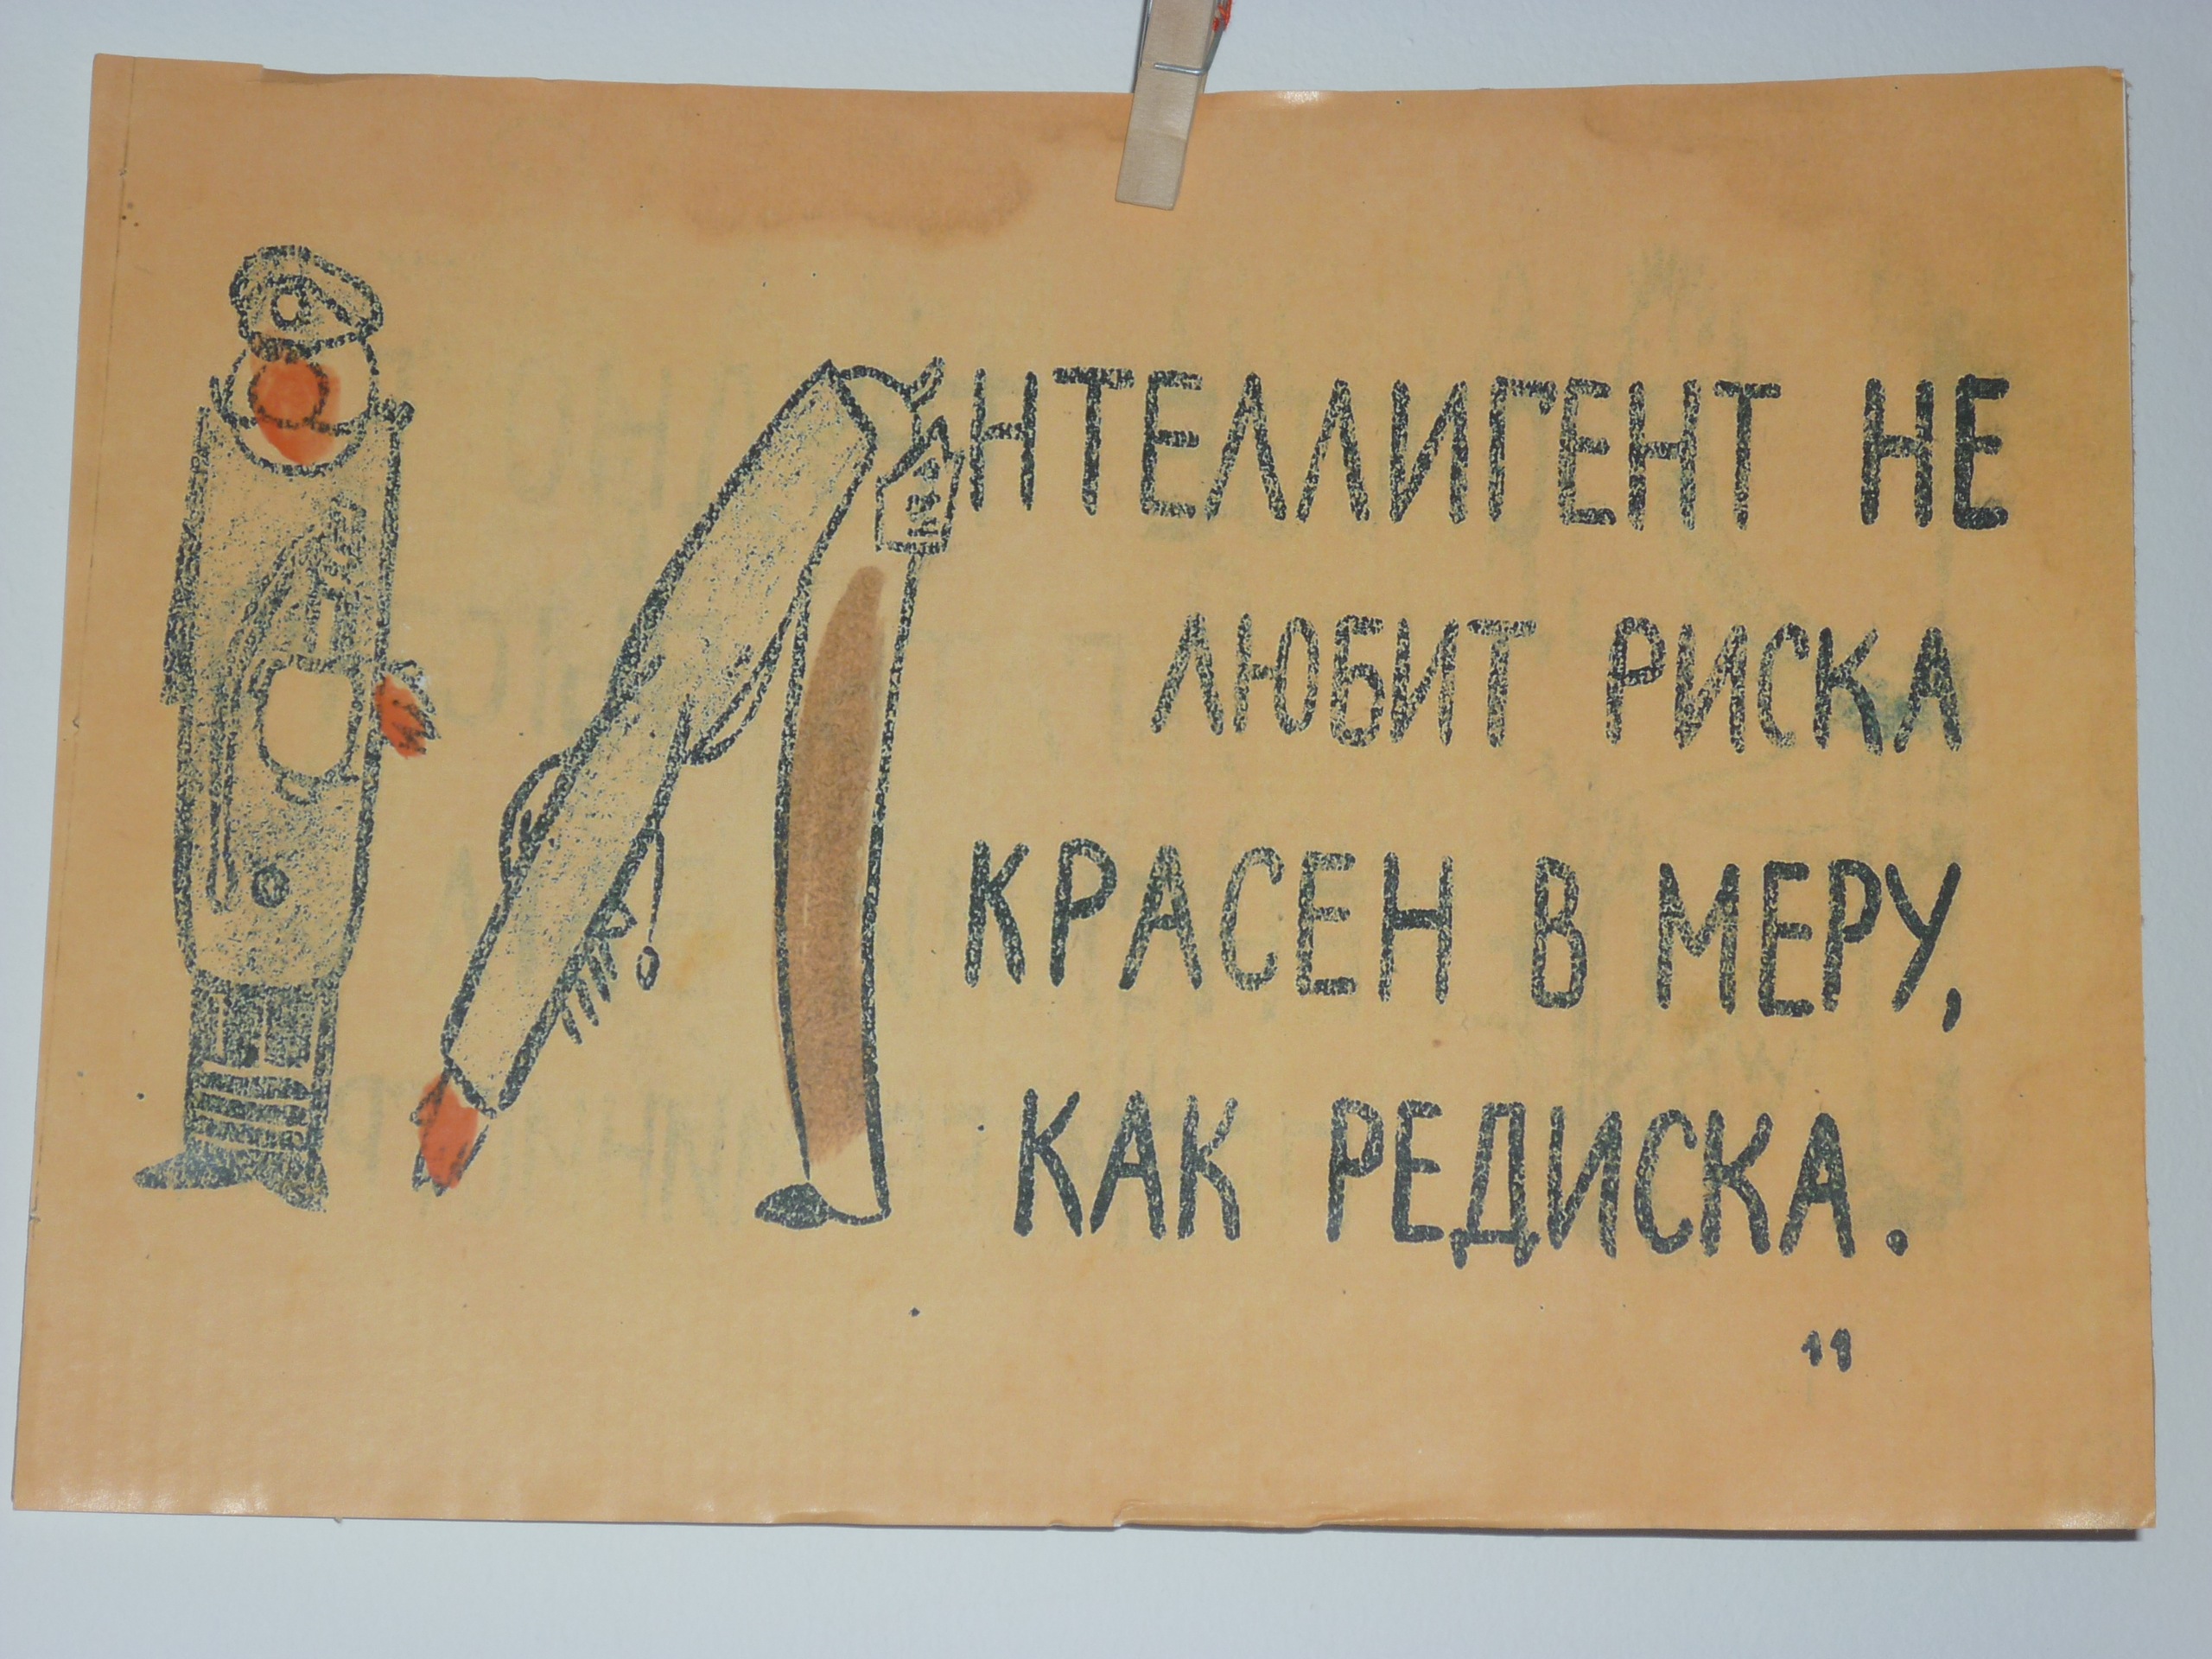 ИНТЕЛЛИГЕНТ НЕ
ЛЮБИТ РИСКА
КРАСЕН В МЕРУ,
КАК РЕДИСКА.
11